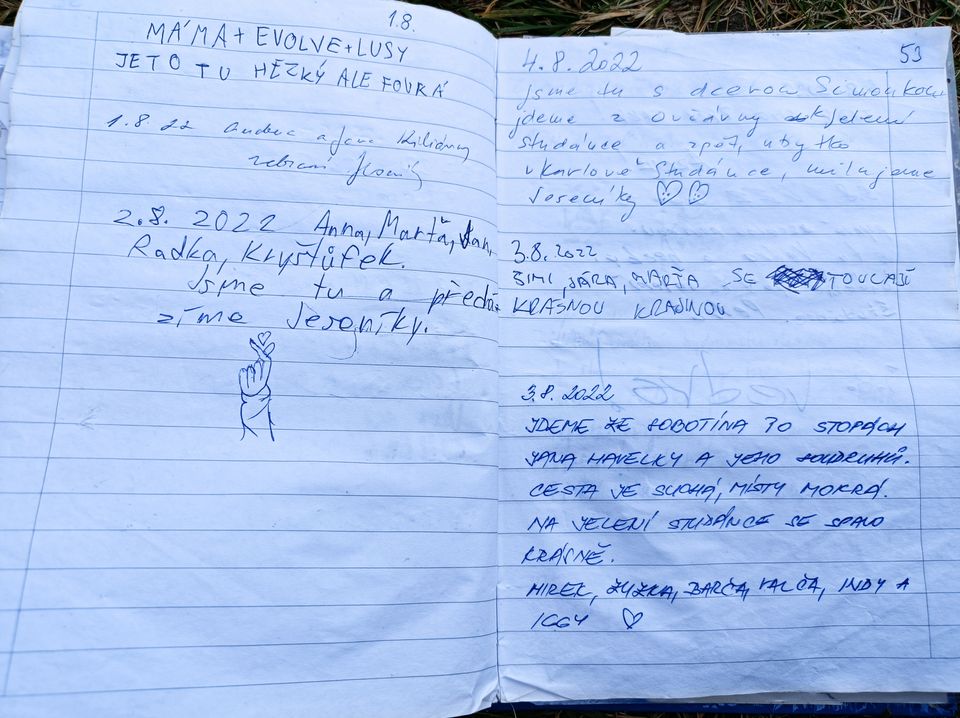 1.8.
MÁMA + EVOLVE + LUSY
JE TO TU HEZKÝ ALE FOUKÁ
1.8.22 a Jana
2.8. 2022 Anna, Marťa, Jan,
Radka, Kryštůfek.
Jsme tu a předá-
zíme Jeseníky.
53
4.8.2022
jsme tu s dcerou Simonkou
jdeme z Ovčárny k Jelení
studánce a zpět, ubytko
v Karlově Studánce, milujeme
Jeseníky
3.8.2022
SIMI, JÁRA, MARŤA SE TOULAJÍ
KRÁSNOU KRAJINOU
3.8.2022
JDEME ZE SOBOTÍNA PO STOPÁCH
JANA HAVELKY A JEHO SOUDRUHŮ.
CESTA JE SUCHÁ, MÍSTY MOKRÁ.
NA JELENÍ STUDÁNCE SE SPALO
KRÁSNĚ.
MIREK, ZUZKA, BARČA, VALČA, INDY A
IGGY